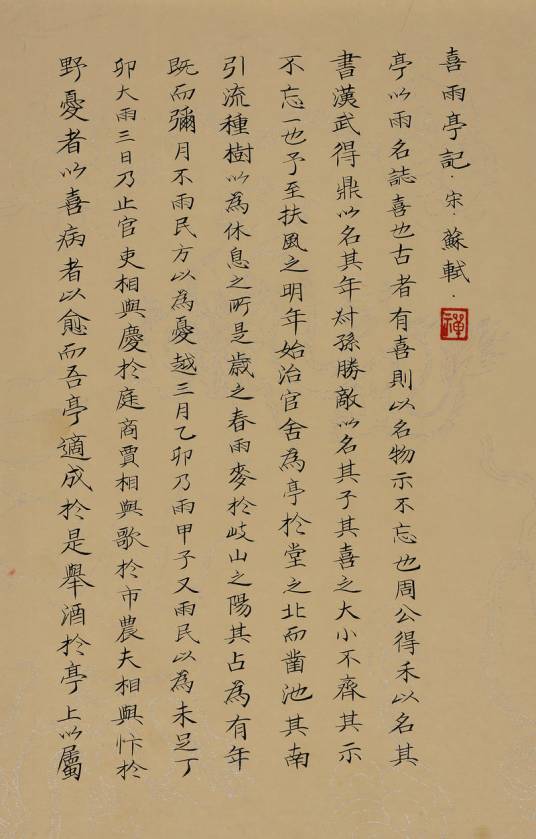 喜雨亭記·宋·蘇軾·
禪
亭以雨名誌喜也古者有喜則以名物示不忘也周公得禾以名其
書漢武得鼎以名其年叔孫勝敵以名其子其喜之大小不齊其示
不忘一也予至扶風之明年始治官舍為亭於堂之北而鑿池其南
引流種樹以為休息之所是歲之春雨麥於岐山之陽其占為有年
既而彌月不雨民方以為憂越三月乙卯乃雨甲子又雨民以為未足丁
卯大雨三日乃止官吏相與慶於庭商賈相與歌於市農夫相與忭於
野憂者以喜病者以愈而吾亭適成於是舉酒於亭上以屬